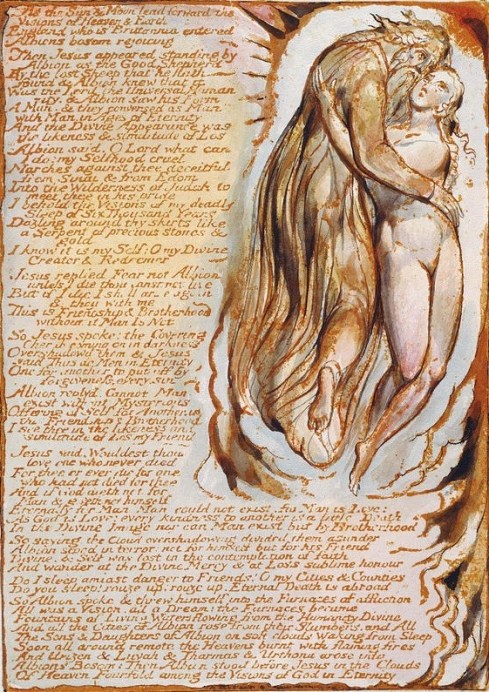 As the Sun & Moon lead forward the
Visions of Heaven & Earth
England who is Brittannia entered
Albions bosom rejoicing
Then Jesus appeared standing by
Albion as the Good Shepherd
By the lost Sheep that he hath
found & Albion knew that it
Was the Lord the Universal Humanity
& Albion saw his Form
A Man. & they conversed as Man
with Man, in Ages of Eternity
And the Divine Appearance was
the likeness & similitude of Los
Albion said. O Lord what can
I do! my Selfhood cruel
Marches against thee deceitful
from Sinai & from Edom
Into the Wilderness of Judah to
meet thee in his pride
I behold the Visions of my deadly
Sleep of Six Thousand Years
Dazling around thy skirts like
a Serpent of precious stones &
gold
I know it is my Self: O my Divine
Creator & Redeemer
Jesus replied Fear not Albion
unless I die thou canst not live
But if I die I shall arise again
& thou with me
This is Friendship & Brotherhood
without it Man Is Not
So Jesus spoke: the Covering
Cherub coming on in darkness
Overshadowd them & Jesus
said Thus do Men in Eternity
One for another to put off by
forgiveness, every sin
Albion replyd. Cannot Man
exist without Mysterious
Offering of Self for Another, is
this Friendship & Brotherhood
I see thee in the likeness &
similitude of Los my Friend
Jesus said. Wouldest thou
love one who never died
For thee or ever die for one
who had not died for thee
And if God dieth not for
Man & giveth not himself
Eternally for Man Man could not exist. for Man is Love:
As God is Love: every kindness to another is a little Death
In the Divine Image nor can Man exist but by Brotherhood
So saying. the Cloud overshadowing divided them asunder
Albion stood in terror: not for himself but for his Friend
Divine, & Self was lost in the contemplation of faith
And wonder at the Divine Mercy & at Los's sublime honour
Do I sleep amidst danger to Friends! O my Cities & Counties
Do you sleep! rouze up. rouze up. Eternal Death is abroad
So Albion spoke & threw himself into the Furnaces of affliction
All was a Vision, all a Dream: the Furnaces became
Fountains of Living Waters flowing from the Humanity Divine
And all the Cities of Albion rose from their Slumbers, and All
The Sons & Daughters of Albion on soft clouds Waking from Sleep
Soon all around remote the Heavens burnt with flaming fires
And Urizen & Luvah & Tharmas & Urthona arose into
Albions Bosom: Then Albion stood before Jesus in the Clouds
Of Heaven Fourfold among the Visions of God in Eternity